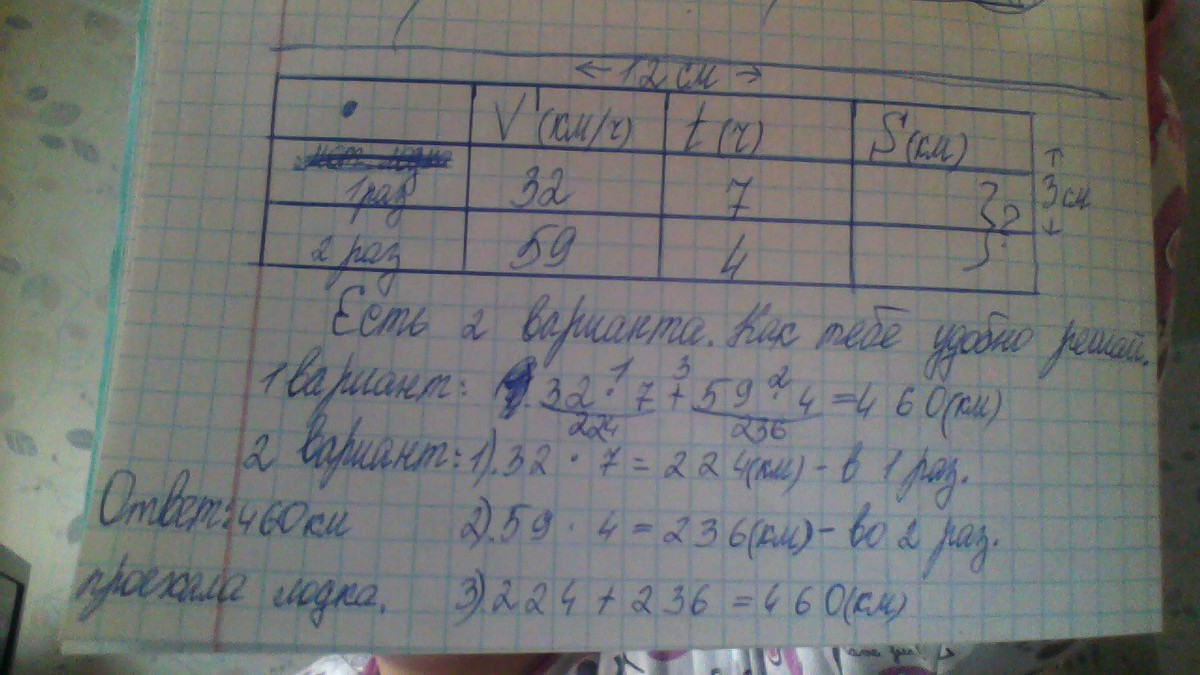 ← 12 см →
V (км/ч) t (ч) S (км)
1 раз 32 7
2 раз 59 4
} ?
3 см
Есть 2 варианта. Как тебе удобно решай.
1 вариант: 32 · 7 + 59 · 4 = 460 (км)
1 3 2
224 236
2 вариант: 1). 32 · 7 = 224(км) - в 1 раз.
2). 59 · 4 = 236(км) - во 2 раз.
3). 224 + 236 = 460(км)
Ответ: 460 км
проехала лодка.